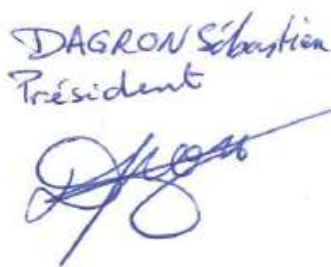 DAGRON Sébastien
Président